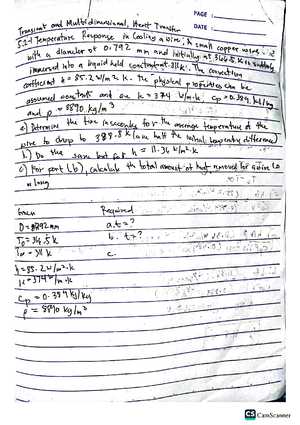 PAGE :
Transient and Multidimensional, Heat Transfer
DATE :
5.2-1 Temperature Response in Cooling a Wire, A small copper wire
with a diameter of 0.792 mm and initially at 366.5 K is suddenly
immersed into a liquid held constant at 311 K. The convection
coefficient h = 85.2 W/m² K. the physical properties can be
assumed constant and are k = 374 W/m·K, Cp = 0.389 kJ/kg
and ρ = 8890 kg/m³
a) Determine the time in seconds for the average temperature of the
wire to drop to 338.8 K (one half the initial temperature difference)
b.) Do the same but for h = 11.36 W/m²·K
c) For part (b), calculate the total amount of heat removed for a wire
m long
Given
Required
D = 0.792 mm
a. t = ?
b. t = ?
T∞ = 311 K
c.
h = 85.2 W/m²·K
k = 374 W/m·K
Cp = 0.389 kJ/kg
ρ = 8890 kg/m³
CS CamScanner